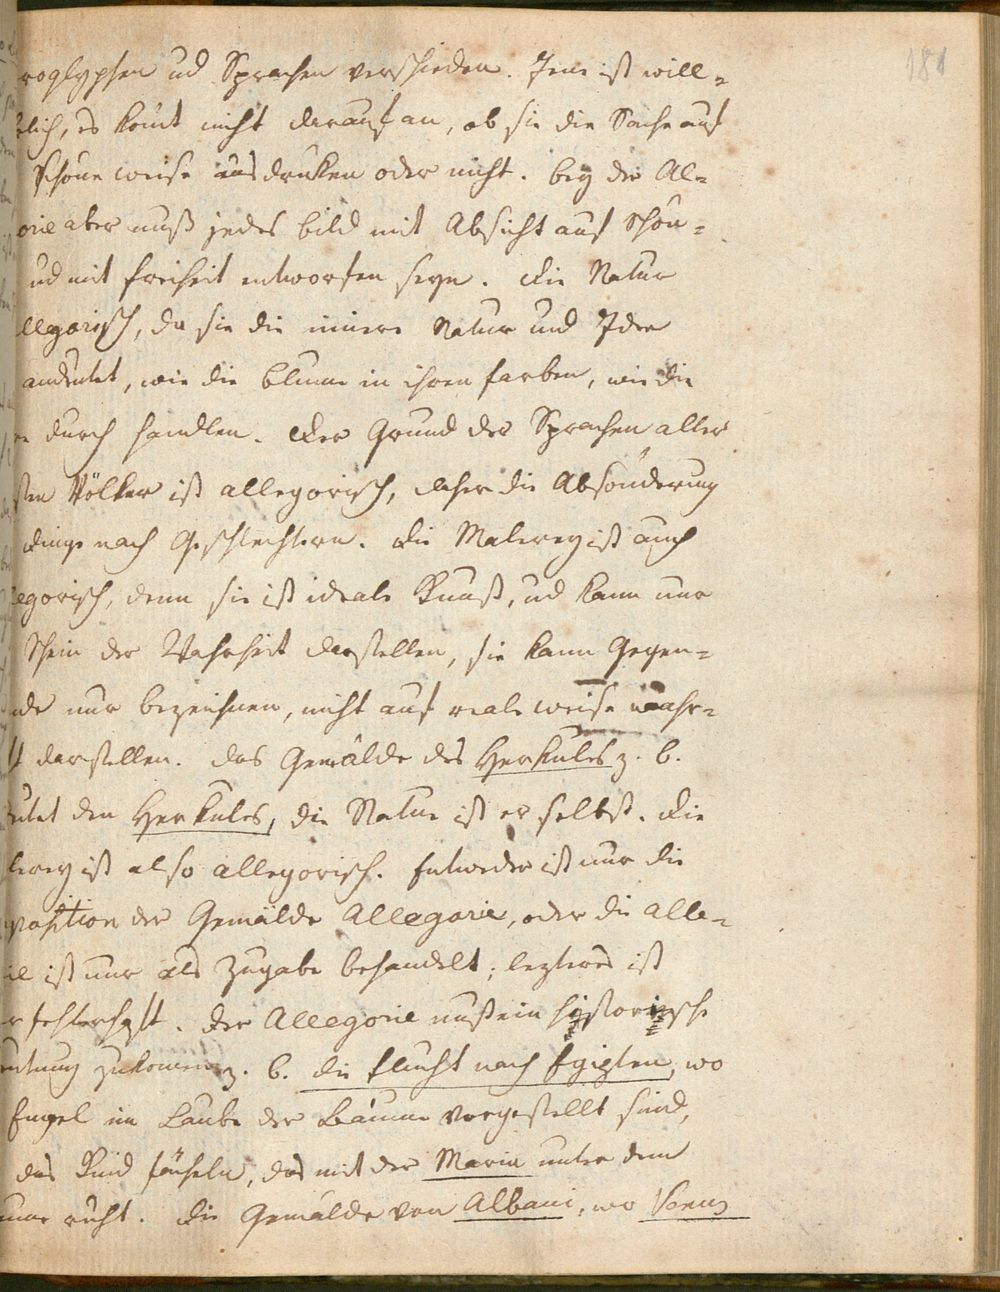 181
roglyphen ud Sprachen verschieden. Jene ist will-
lich, es kom̅t nicht darauf an, ob sie die Sache auf
schöne weise ausdruken oder nicht. bey der Al-
orie aber muß jedes bild mit Absicht auf Schön-
ud mit freiheit entworfen seyn. die Natur
llegorisch, da sie die innere Natur und Idee
andeutet, wie die blume in ihren farben, wie die
re durch handlen. der Grund der Sprachen aller
sten Völker ist allegorisch, daher die Absönderung
dinge nach Geschlechtern. die Malerey ist auch
egorisch, denn sie ist ideale Kunst, ud kann nur
Schein der Wahrheit darstellen, sie kann Gegen-
nde nur bezeichnen, nicht auf reale weise wahr-
ft darstellen. das Gemälde des Herkules z. b.
eutet den Herkules, die Natur ist er selbst. die
lerey ist also allegorisch. Entweder ist nur die
position der Gemälde Allegorie, oder die Alle-
ie ist nur als Zugabe behandelt; lezteres ist
r fehlerhaft. der Allegorie muß ein historische
eutung zukomen z. b. die flucht nach Egipten, wo
Engel im Laube der Bäume vorgestellt sind,
das Kind fächeln, das mit der Maria unter dem
ume ruht. die Gemälde von Albani, wo Venus